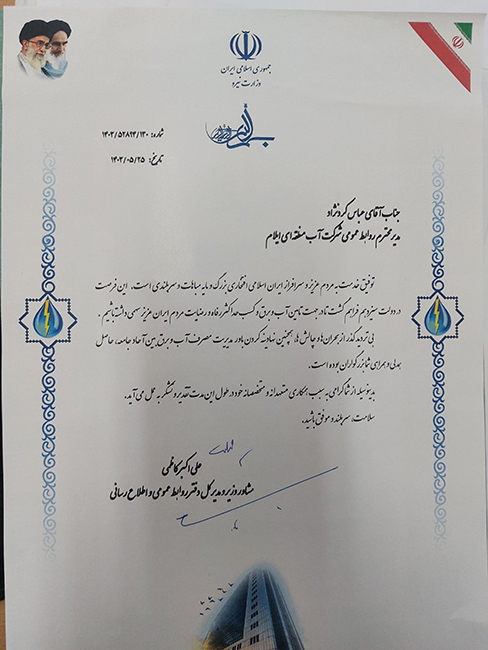 جمهوری اسلامی ایران
وزارت نیرو
شماره: ۱۴۰۳/۵۲۸۲۴/۱۳۰
تاریخ: ۱۴۰۳/۰۵/۲۵
جناب آقای عباس کردنژاد
مدیر محترم روابط عمومی شرکت آب منطقه ای ایلام
توفیق خدمت به مردم عزیز و سرافراز ایران اسلامی افتخاری بزرگ و مایه مباهات و سربلندی است. این فرصت
در دولت سیزدهم فراهم گشت تا در جهت تامین آب و برق و کسب حداکثر رفاه و رضایت مردم ایران عزیز سهمی داشته باشیم.
بی تردید گذر از بحران ها و چالش ها، همچنین نهادینه کردن باور مدیریت مصرف آب و برق بین آحاد جامعه، حاصل
همدلی و همراهی شما بزرگواران بوده است.
بدینوسیله از شما گرامی به سبب همکاری متعهدانه و متخصصانه خود در طول این مدت تقدیر و تشکر به عمل می آید.
سلامت، سربلند و موفق باشید.
علی اکبر کاظمی
مشاور وزیر و مدیرکل دفتر روابط عمومی و اطلاع رسانی